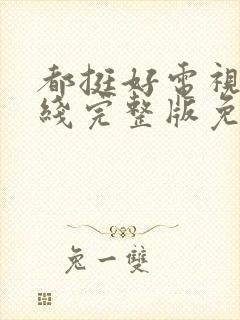 都挺好電視
綫完整版免
兔一雙